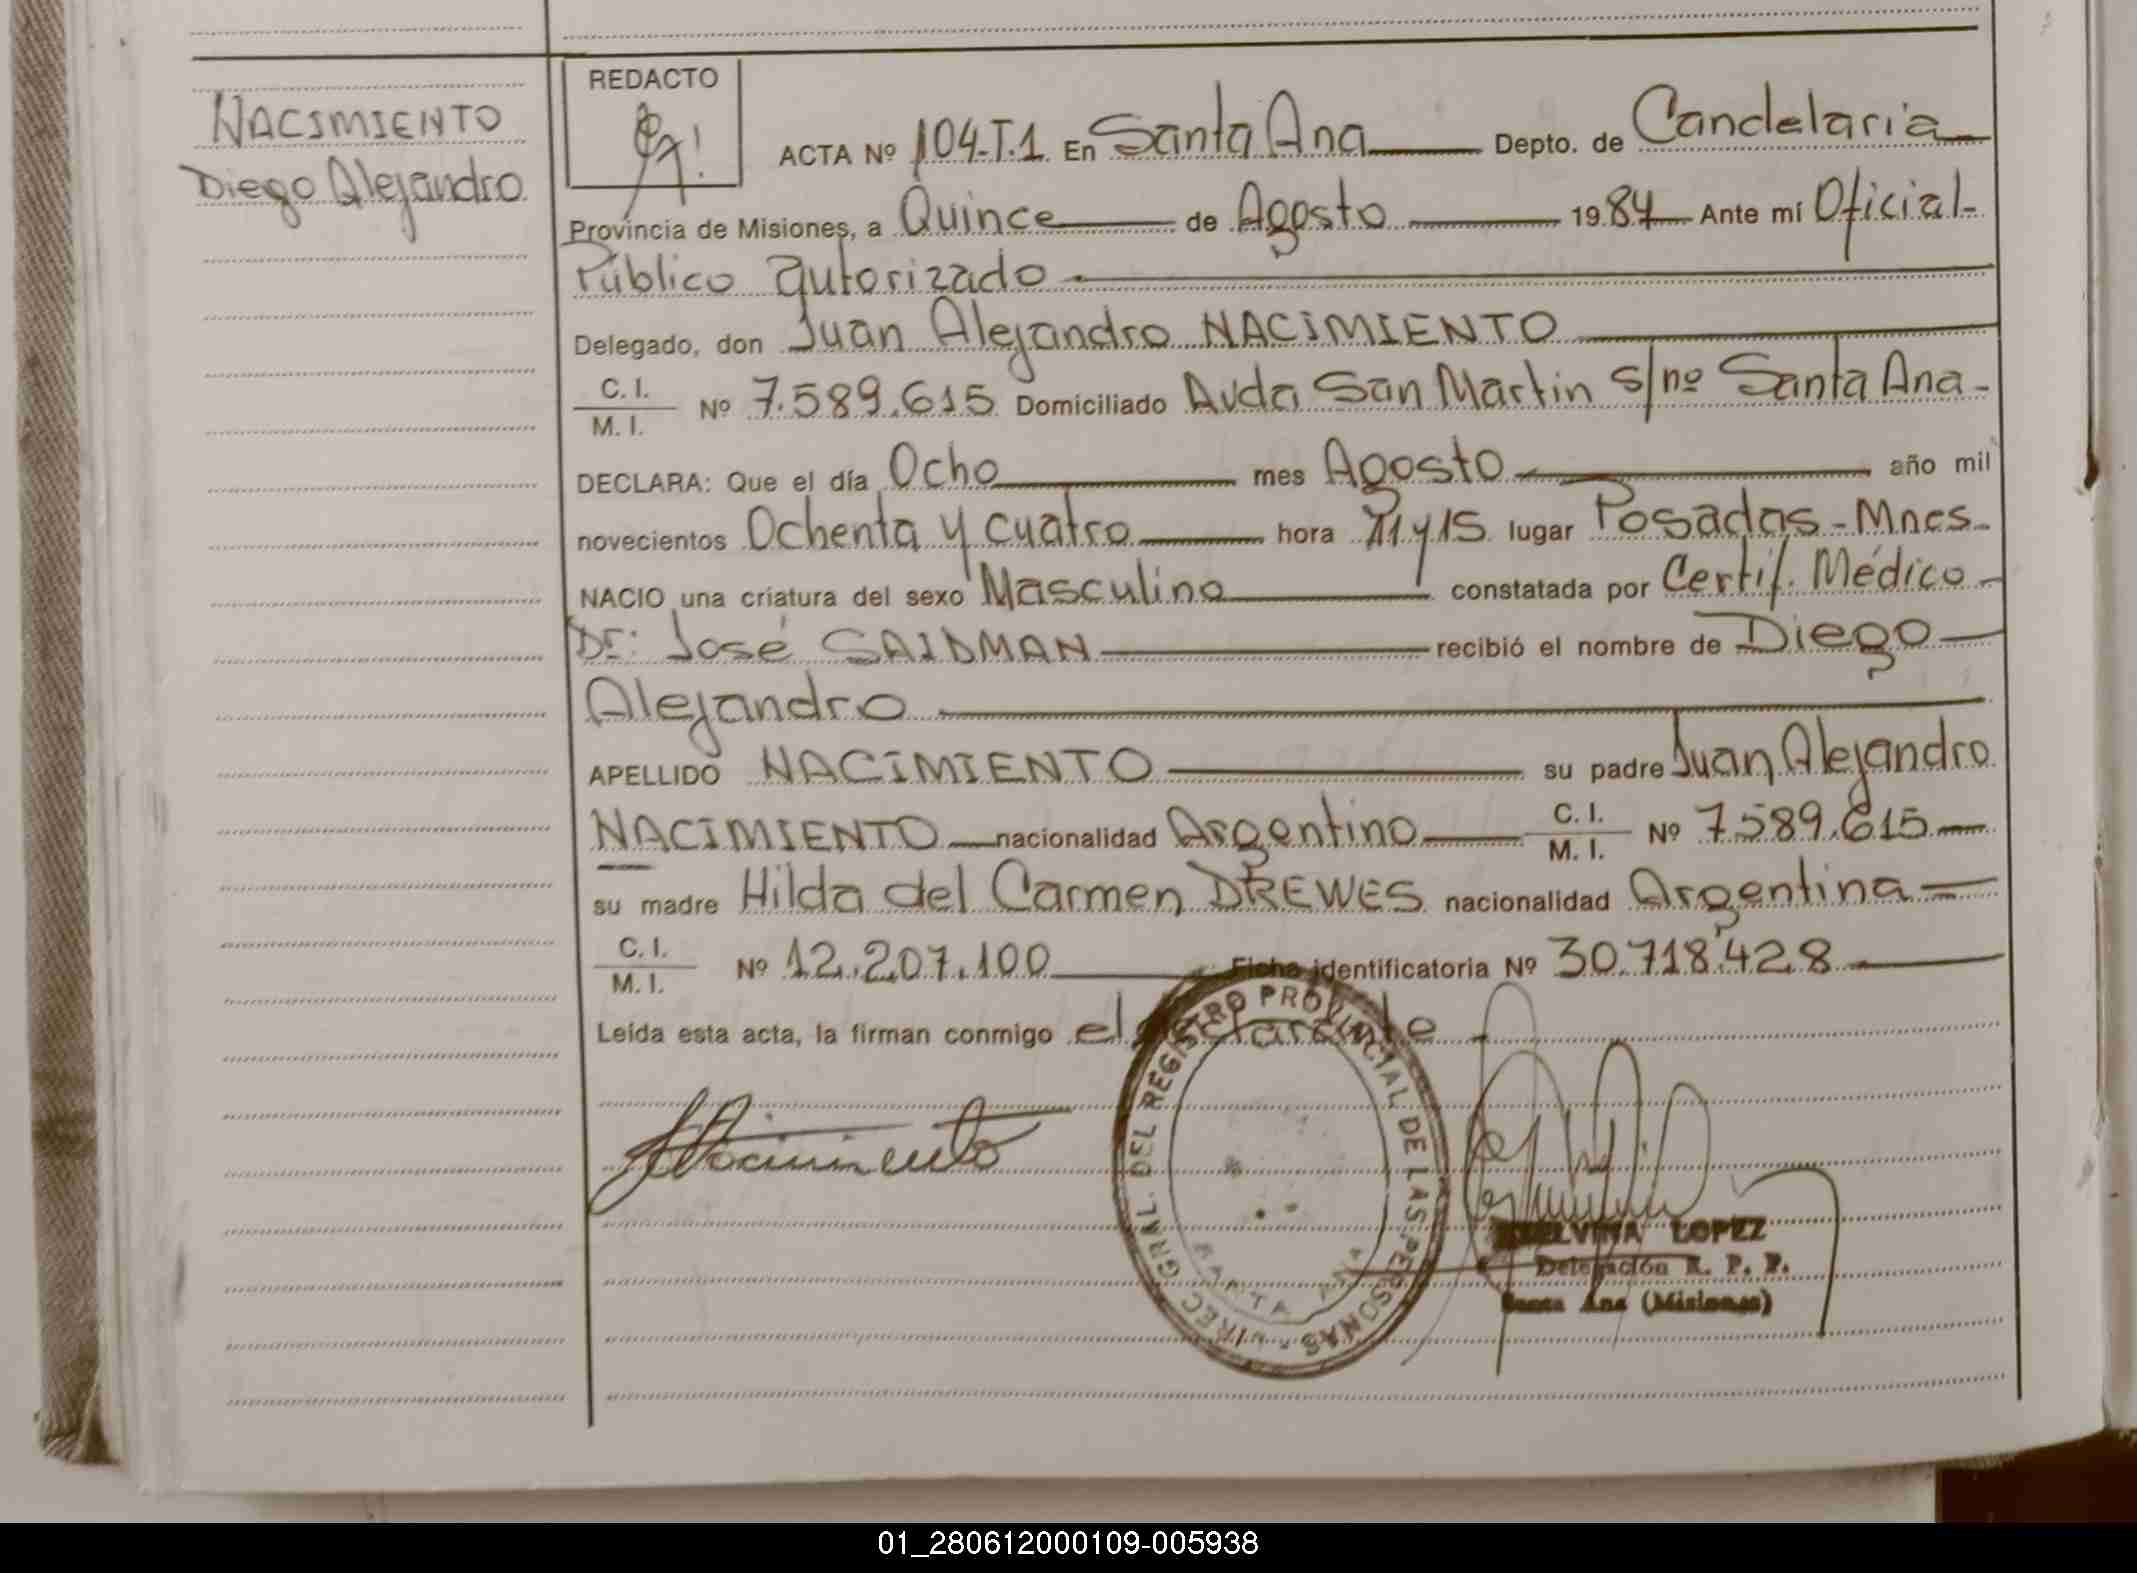 NACIMIENTO
Diego Alejandro
REDACTO
ACTA Nº 104-T.1 En Santa Ana Depto. de Candelaria
Provincia de Misiones, a Quince de Agosto 1984 Ante mí Oficial
Público autorizado
Delegado, don Juan Alejandro NACIMIENTO
C. I.
M. I. Nº 7.589.615 Domiciliado Avda San Martin s/nº Santa Ana
DECLARA: Que el día Ocho mes Agosto año mil
novecientos Ochenta y cuatro hora y 15 lugar Posadas - Mnes.
NACIO una criatura del sexo Masculino constatada por Certif. Médico
Dr: José SAIDMAN recibió el nombre de Diego
Alejandro
APELLIDO NACIMIENTO su padre Juan Alejandro
NACIMIENTO nacionalidad Argentino C. I. M. I. Nº 7.589.615
su madre Hilda del Carmen DREWES nacionalidad Argentina
C. I.
M. I. Nº 12.207.100 Ficha identificatoria Nº 30.718.428
Leída esta acta, la firman conmigo el
Nacimiento
DIREC. GRAL. DEL REGISTRO PROVINCIAL DE LAS PERSONAS
SANTA ANA
ELVINA LOPEZ
Delegación R. P. P.
Santa Ana (Misiones)
01_280612000109-005938